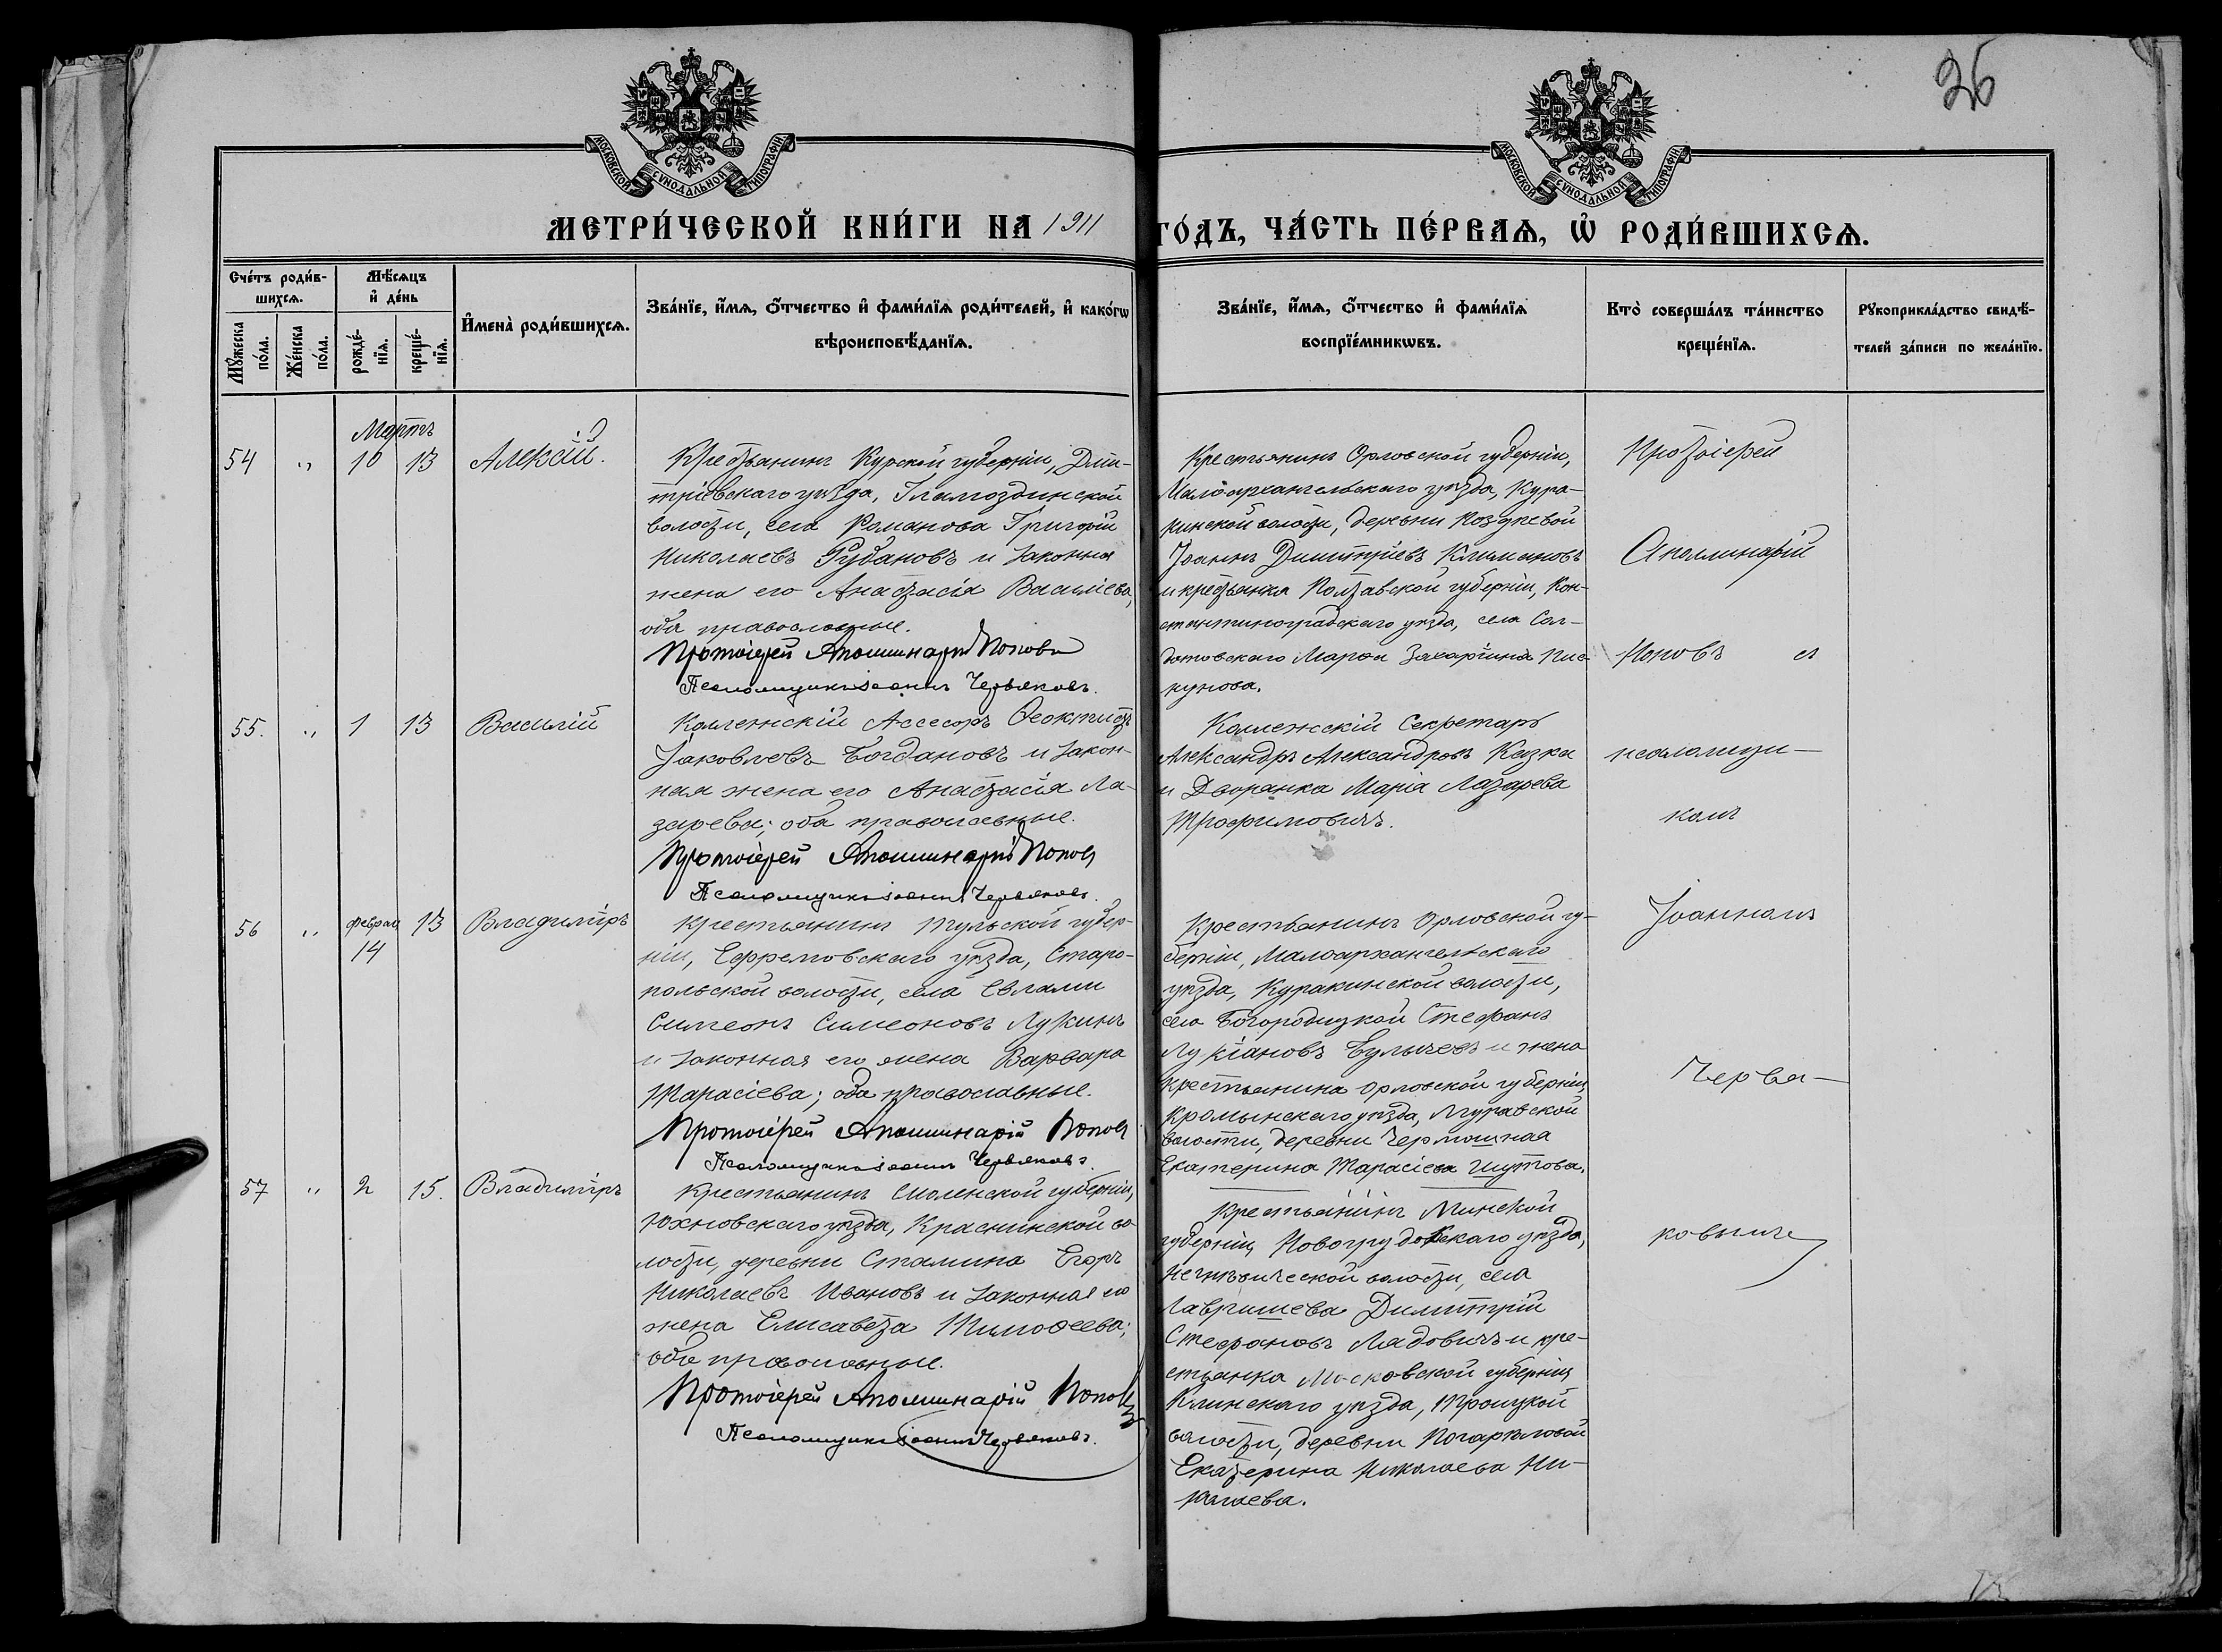 26
МОСКОВСКОЙ СѴНОДАЛЬНОЙ ТИПОГРАФІИ
МОСКОВСКОЙ СѴНОДАЛЬНОЙ ТИПОГРАФІИ
МЕТРИ́ЧЕСКОЙ КНИ́ГИ НА 1911 ГО́ДЪ, ЧА́СТЬ ПЕ́РВАѦ, Ѡ҆ РОДИ́ВШИХСѦ.
Сче́тъ роди́в-
шихсѧ.
Мꙋ́жеска
по́ла.
Же́нска
по́ла.
Мѣ́сѧцъ
и҆ де́нь
рожде́-
нїѧ.
креще́-
нїѧ.
И҆мена̀ роди́вшихсѧ.
Зва́нїе, и҆́мѧ, ѻ҆́тчество и҆ фами́лїѧ роди́телей, и҆ како́гѡ
вѣроисповѣ́данїѧ.
Зва́нїе, и҆́мѧ, ѻ҆́тчество и҆ фами́лїѧ
воспрїе́мникѡвъ.
Кто̀ соверша́лъ та́инство
креще́нїѧ.
Рꙋкоприкла́дство свидѣ́-
телей за́писи по жела́нїю.
Мартъ
54 " 10 13 Алексій.
Крестьянинъ Курской губерніи, Дми-
тріевскаго уѣзда, Гламоздинской
волости, села Романова Григорій
Николаевъ Рубановъ и законная
жена его Анастасія Василіева,
оба православные.
Протоіерей Аполлинарій Поповъ
Псаломщикъ Іоаннъ Червяковъ.
Крестьянинъ Орловской губерніи,
Малоархангельскаго уѣзда, Кура-
кинской волости, деревни
Іоаннъ Димитріевъ Климановъ
и крестьянка Полтавской губерніи, Кон-
стантиноградскаго уѣзда, села Сол-
датовскаго Марфа Захаріина Пис-
кунова.
Протоіерей
Аполлинарій
Поповъ съ
55. " 1 13 Василій
Коллежскій Ассесоръ Феоктистъ
Іаковлевъ Богдановъ и закон-
ная жена его Анастасія Ла-
зарева; оба православные.
Протоіерей Аполлинарій Поповъ
Псаломщикъ Іоаннъ Червяковъ.
Коллежскій Секретарь
Александръ Александровъ Казка
и Дворянка Марія Лазарева
Трофимовичъ.
псаломщи-
комъ
56 " Феврал. 14 13 Владиміръ
Крестьянинъ Тульской губер-
ніи, Ефремовскаго уѣзда, Старо-
польской волости, села Евлами
Симеонъ Симеоновъ Лукинъ
и законная его жена Варвара
Тарасіева; оба православные.
Протоіерей Аполлинарій Поповъ
Псаломщикъ Іоаннъ Червяковъ.
Крестьянинъ Орловской гу-
берніи, Малоархангельскаго
уѣзда, Куракинской волости,
села Богородицкой Стефанъ
Лукіановъ Булычевъ и жена
крестьянина Орловской губерніи,
Кромынскаго уѣзда,
волости, деревни Чермошная
Екатерина Тарасіева Шутова.
Іоанномъ
Червя-
57 " 2 15. Владиміръ
Крестьянинъ Смоленской губерніи,
Юхновскаго уѣзда, Краснинской во-
лости, деревни Стамина Егоръ
Николаевъ Ивановъ и законная его
жена Елисавета Тимофеева;
оба православные.
Протоіерей Аполлинарій Поповъ
Псаломщикъ Іоаннъ Червяковъ.
Крестьянинъ Минской
губерніи, Новогрудокскаго уѣзда,
волости, села
Лавришева Димитрій
Стефановъ Лядовичъ и кре-
стьянка Московской губерніи
Клинскаго уѣзда, Троицкой
волости, деревни
Екатерина Николаева Ни-
колаева.
ковымъ